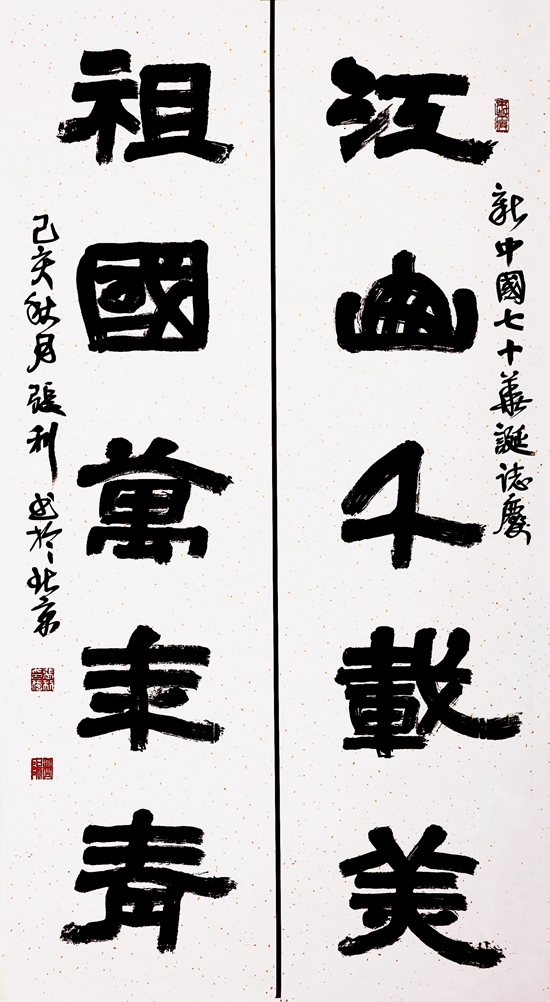 新中國七十華誕誌慶
江山千載美
祖國萬年青
己亥秋月張利書於北京